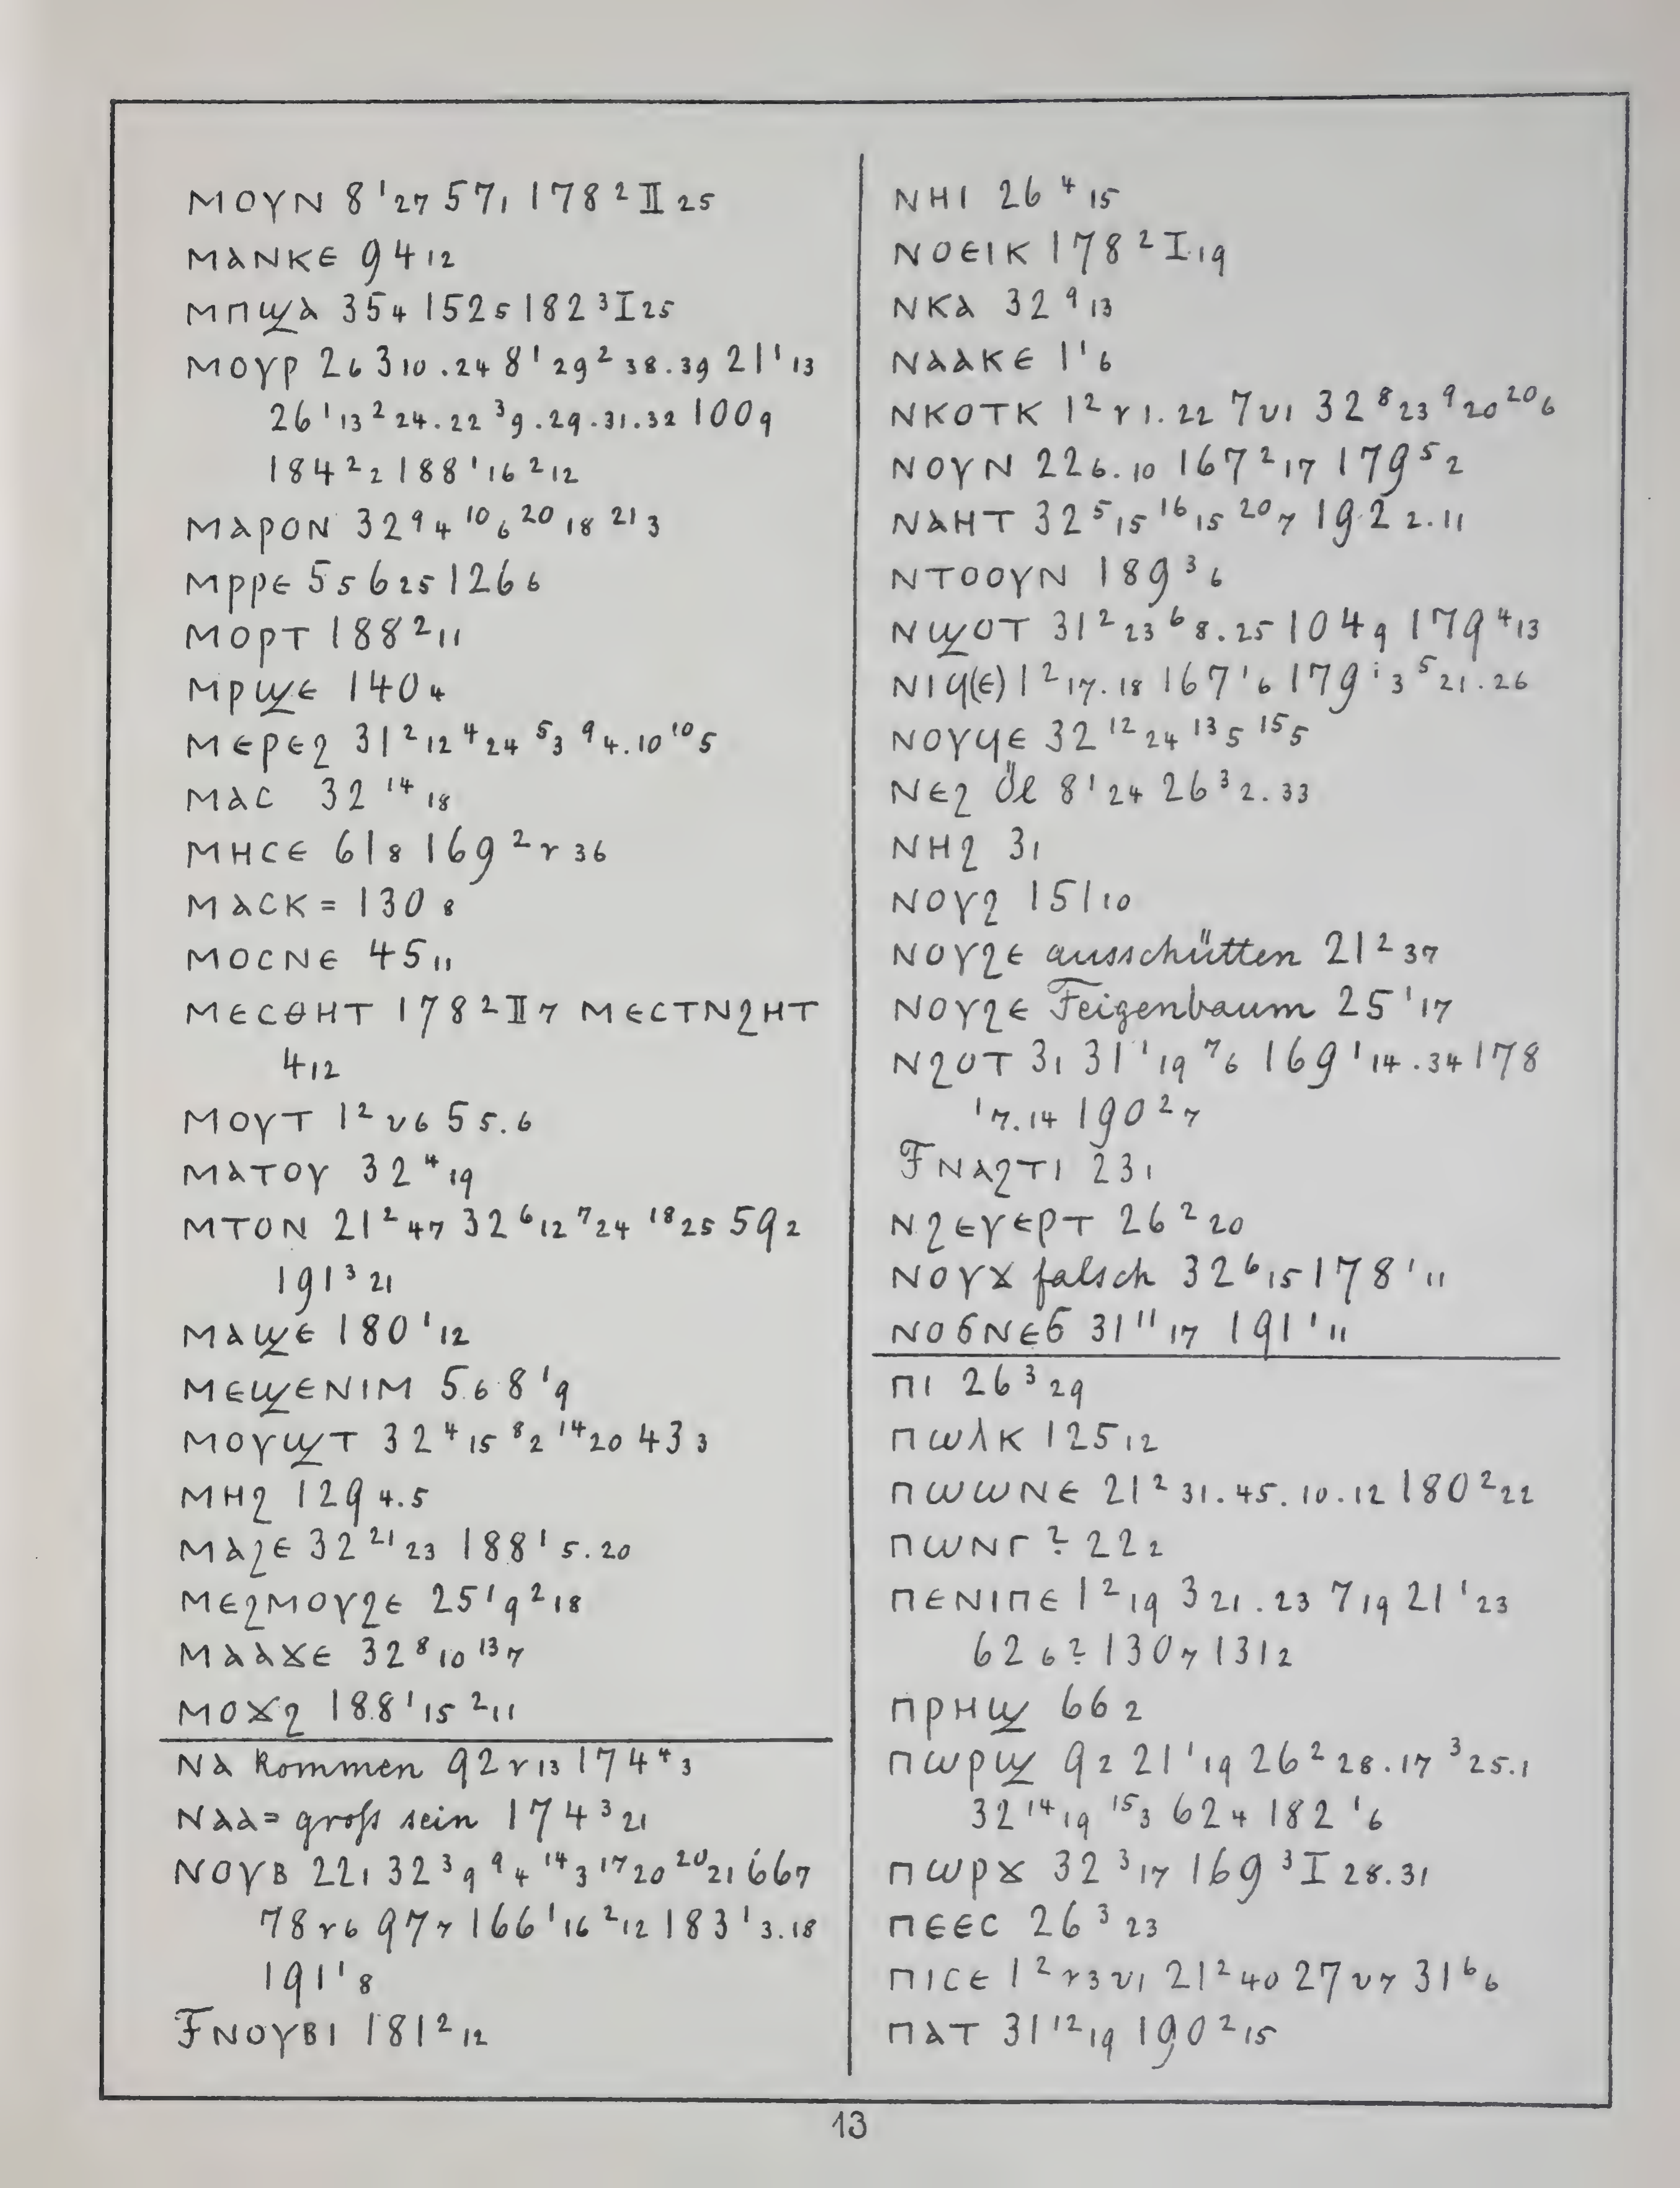 ⲙⲟⲩⲛ 8 ¹ ₂₇ 57₁ 178 ² II ₂₅
ⲙⲁⲛⲕⲉ 94 ₁₂
ⲙⲡϣⲁ 35₄ 152₅ 182 ³ I ₂₅
ⲙⲟⲩⲣ 2₆ 3₁₀.₂₄ 8 ¹ ₂₉ ² ₃₈.₃₉ 21 ¹ ₁₃
26 ¹ ₁₃ ² ₂₄.₂₂ ³ ₉.₂₉.₃₁.₃₂ 100₉
184 ² ₂ 188 ¹ ₁₆ ² ₁₂
ⲙⲁⲣⲟⲛ 32 ⁹ ₄ ¹⁰ ₆ ²⁰ ₁₈ ²¹ ₃
ⲙⲣⲣⲉ 5₅ 6₂₅ 126₆
ⲙⲟⲣⲧ 188 ² ₁₁
ⲙⲣϣⲉ 140₄
ⲙⲉⲣⲉϩ 31 ² ₁₂ ⁴ ₂₄ ⁵ ₃ ⁹ ₄.₁₀ ¹⁰ ₅
ⲙⲁⲥ 32 ¹⁴ ₁₈
ⲙⲏⲥⲉ 61₈ 169 ² r ₃₆
ⲙⲁⲥⲕ= 130 ₈
ⲙⲟⲥⲛⲉ 45₁₁
ⲙⲉⲥⲑⲏⲧ 178 ² II ₇ ⲙⲉⲥⲧⲛϩⲏⲧ
4₁₂
ⲙⲟⲩⲧ 1 ² v₆ 5₅.₆
ⲙⲁⲧⲟⲩ 32 ⁴ ₁₉
ⲙⲧⲟⲛ 21 ² ₄₇ 32 ⁶ ₁₂ ⁷ ₂₄ ¹⁸ ₂₅ 59₂
191 ³ ₂₁
ⲙⲁϣⲉ 180 ¹ ₁₂
ⲙⲉϣⲉⲛⲓⲙ 5₆ 8 ¹ ₉
ⲙⲟⲩϣⲧ 32 ⁴ ₁₅ ⁸ ₂ ¹⁴ ₂₀ 43₃
ⲙⲏϩ 129₄.₅
ⲙⲁϩⲉ 32 ²¹ ₂₃ 188 ¹ ₅.₂₀
ⲙⲉϩⲙⲟⲩϩⲉ 25 ¹ ₉ ² ₁₈
ⲙⲁⲁϫⲉ 32 ⁸ ₁₀ ¹³ ₇
ⲙⲟϫϩ 188 ¹ ₁₅ ² ₁₁
ⲛⲁ kommen 92 r ₁₃ 174 ⁴ ₃
ⲛⲁⲁ= groß sein 174 ³ ₂₁
ⲛⲟⲩⲃ 22₁ 32 ³ ₉ ⁹ ₄ ¹⁴ ₃ ¹⁷ ₂₀ ²⁰ ₂₁ 66₇
78 r₆ 97₇ 166 ¹ ₁₆ ² ₁₂ 183 ¹ ₃.₁₈
191 ¹ ₈
Fⲛⲟⲩⲃⲓ 181 ² ₁₂
ⲛⲏⲓ 26 ⁴ ₁₅
ⲛⲟⲉⲓⲕ 178 ² I ₁₉
ⲛⲕⲁ 32 ⁹ ₁₃
ⲛⲁⲁⲕⲉ 1 ¹ ₆
ⲛⲕⲟⲧⲕ 1 ² r₁.₂₂ 7 v₁ 32 ⁸ ₂₃ ⁹ ₂₀ ²⁰ ₆
ⲛⲟⲩⲛ 22₆.₁₀ 167 ² ₁₇ 179 ⁵ ₂
ⲛⲁⲏⲧ 32 ⁵ ₁₅ ¹⁶ ₁₅ ²⁰ ₇ 192 ₂.₁₁
ⲛⲧⲟⲟⲩⲛ 189 ³ ₆
ⲛϣⲟⲧ 31 ² ₂₃ ⁶ ₈.₂₅ 104₉ 179 ⁴ ₁₃
ⲛⲓϥ(ⲉ) 1 ² ₁₇.₁₈ 167 ¹ ₆ 179 ¹ ₃ ⁵ ₂₁.₂₆
ⲛⲟⲩϥⲉ 32 ¹² ₂₄ ¹³ ₅ ¹⁵ ₅
ⲛⲉϩ Öl 8 ¹ ₂₄ 26 ³ ₂.₃₃
ⲛⲏϩ 3₁
ⲛⲟⲩϩ 151₁₀
ⲛⲟⲩϩⲉ ausschütten 21 ² ₃₇
ⲛⲟⲩϩⲉ Feigenbaum 25 ¹ ₁₇
ⲛϩⲟⲧ 3₁ 31 ¹ ₁₉ ⁷ ₆ 169 ¹ ₁₄.₃₄ 178
¹ ₇.₁₄ 190 ² ₇
Fⲛⲁϩⲧⲓ 23₁
ⲛϩⲉⲩⲉⲣⲧ 26 ² ₂₀
ⲛⲟⲩϫ falsch 32 ⁶ ₁₅ 178 ¹ ₁₁
ⲛⲟϭⲛⲉϭ 31 ¹¹ ₁₇ 191 ¹ ₁₁
ⲡⲓ 26 ³ ₂₉
ⲡⲱⲗⲕ 125₁₂
ⲡⲱⲱⲛⲉ 21 ² ₃₁.₄₅.₁₀.₁₂ 180 ² ₂₂
ⲡⲱⲛⲅ ? 22₂
ⲡⲉⲛⲓⲡⲉ 1 ² ₁₉ 3₂₁.₂₃ 7₁₉ 21 ¹ ₂₃
62₆? 130₇ 131₂
ⲡⲣⲏϣ 66₂
ⲡⲱⲣϣ 9₂ 21 ¹ ₁₉ 26 ² ₂₈.₁₇ ³ ₂₅.₁
32 ¹⁴ ₁₉ ¹⁵ ₃ 62₄ 182 ¹ ₆
ⲡⲱⲣϫ 32 ³ ₁₇ 169 ³ I ₂₈.₃₁
ⲡⲉⲉⲥ 26 ³ ₂₃
ⲡⲓⲥⲉ 1 ² r₃ v₁ 21 ² ₄₀ 27 v₇ 31 ⁶ ₆
ⲡⲁⲧ 31 ¹² ₁₉ 190 ² ₁₅
13